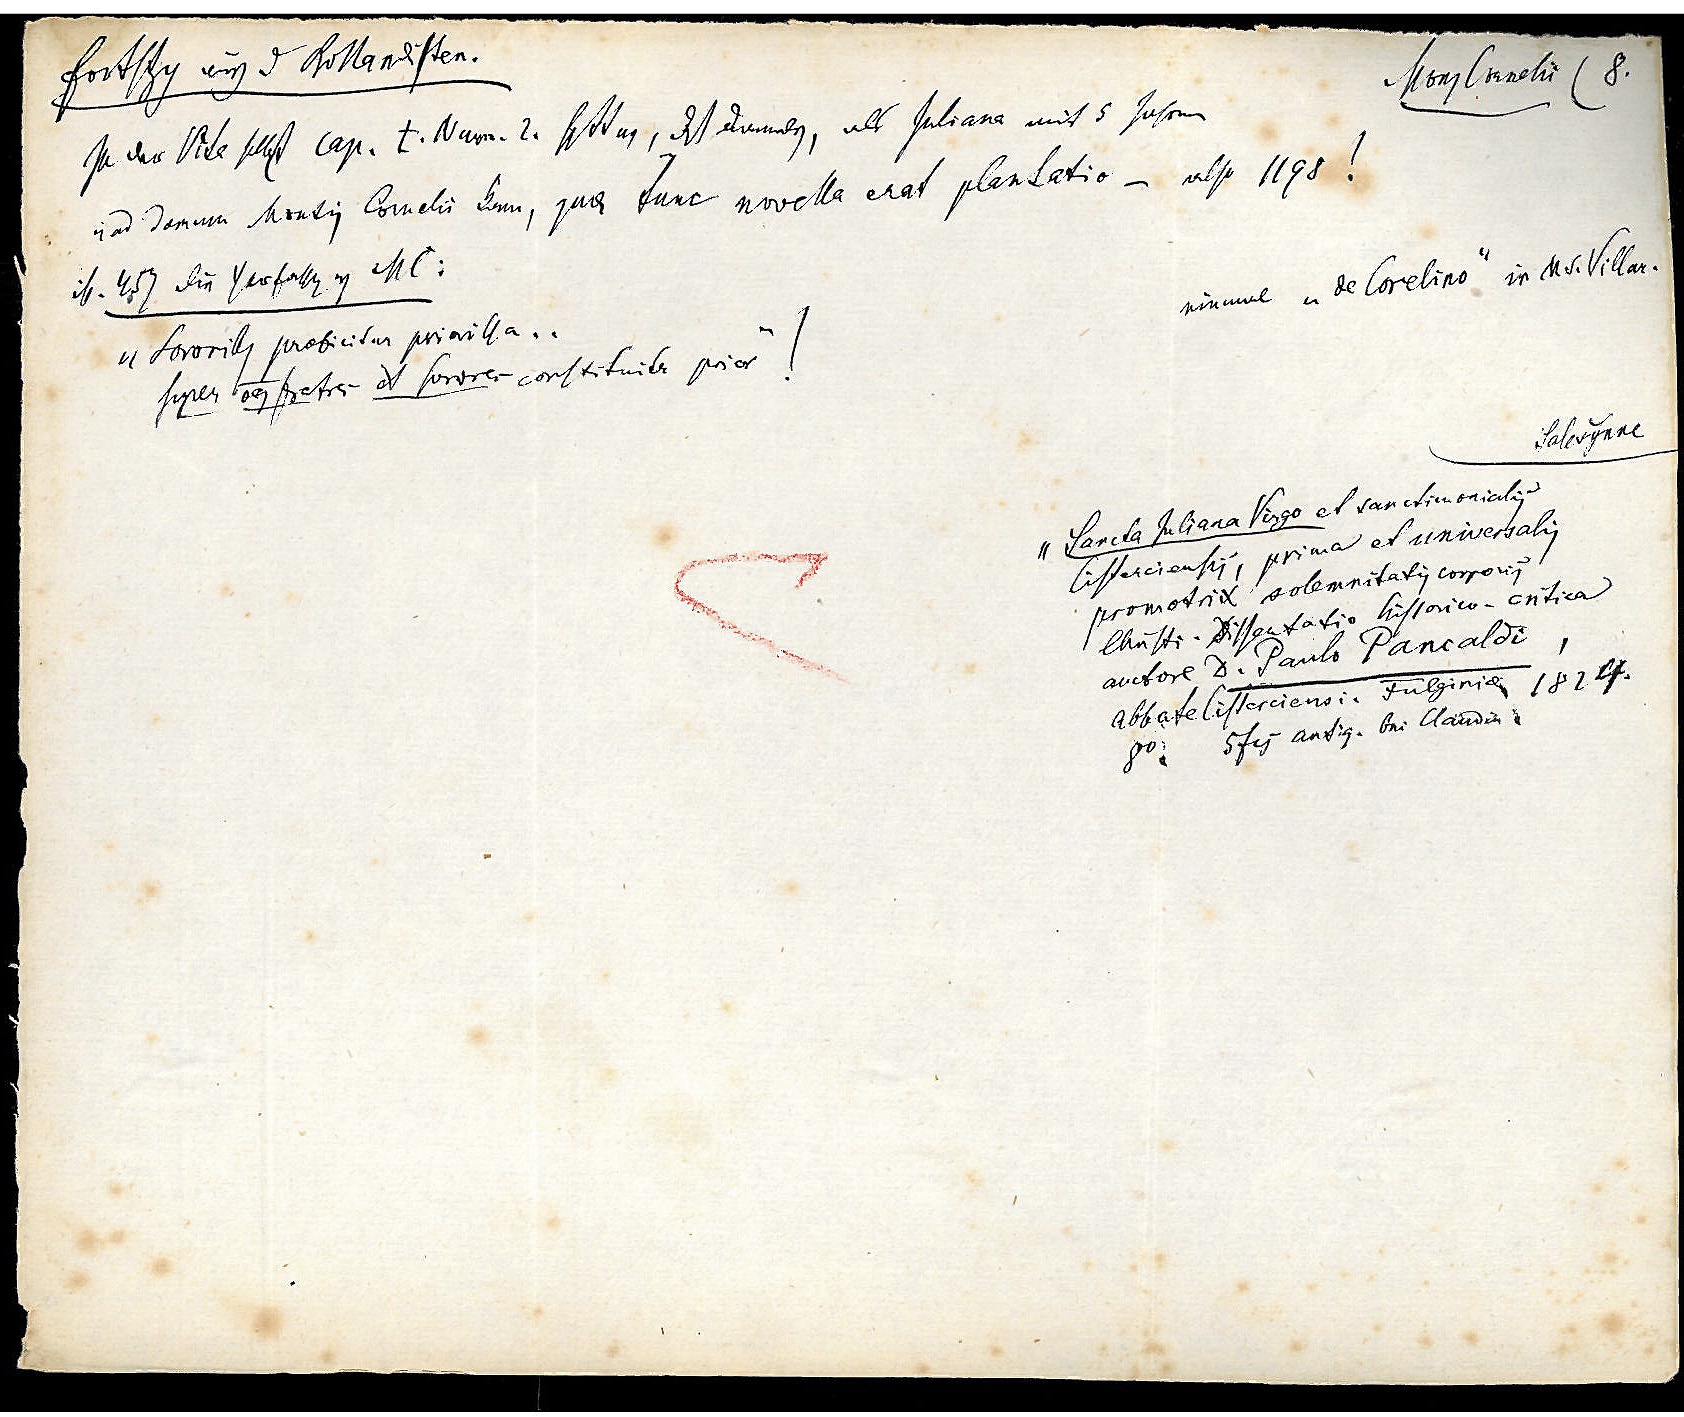 Fortsetzg aus d Bollandisten.
Mons Cornelii (8.
In der Vita selbst cap. 1. Num. 2. , daß damals, als Juliana mit 5 Jahren
ad Domum Montis Cornelii kam, quae tunc novella erat plantatio – also 1198!
ib. 457 die Verfassg v MC:
einmal „de Corelino" in MS. Villar.
„Sororibs praeficitur priorissa..
super oes fratres et sorores constituitur prior" !
Salesynne
„Sancta Juliana Virgo et sanctimonialis
Cisterciensis, prima et universalis
promotrix solemnitatis corporis
Christi. Dissertatio historico-critica
auctore D. Paulo Pancaldi,
abbate Cisterciensi. Fulginiae 1824.
8o. 5 antiq. bei